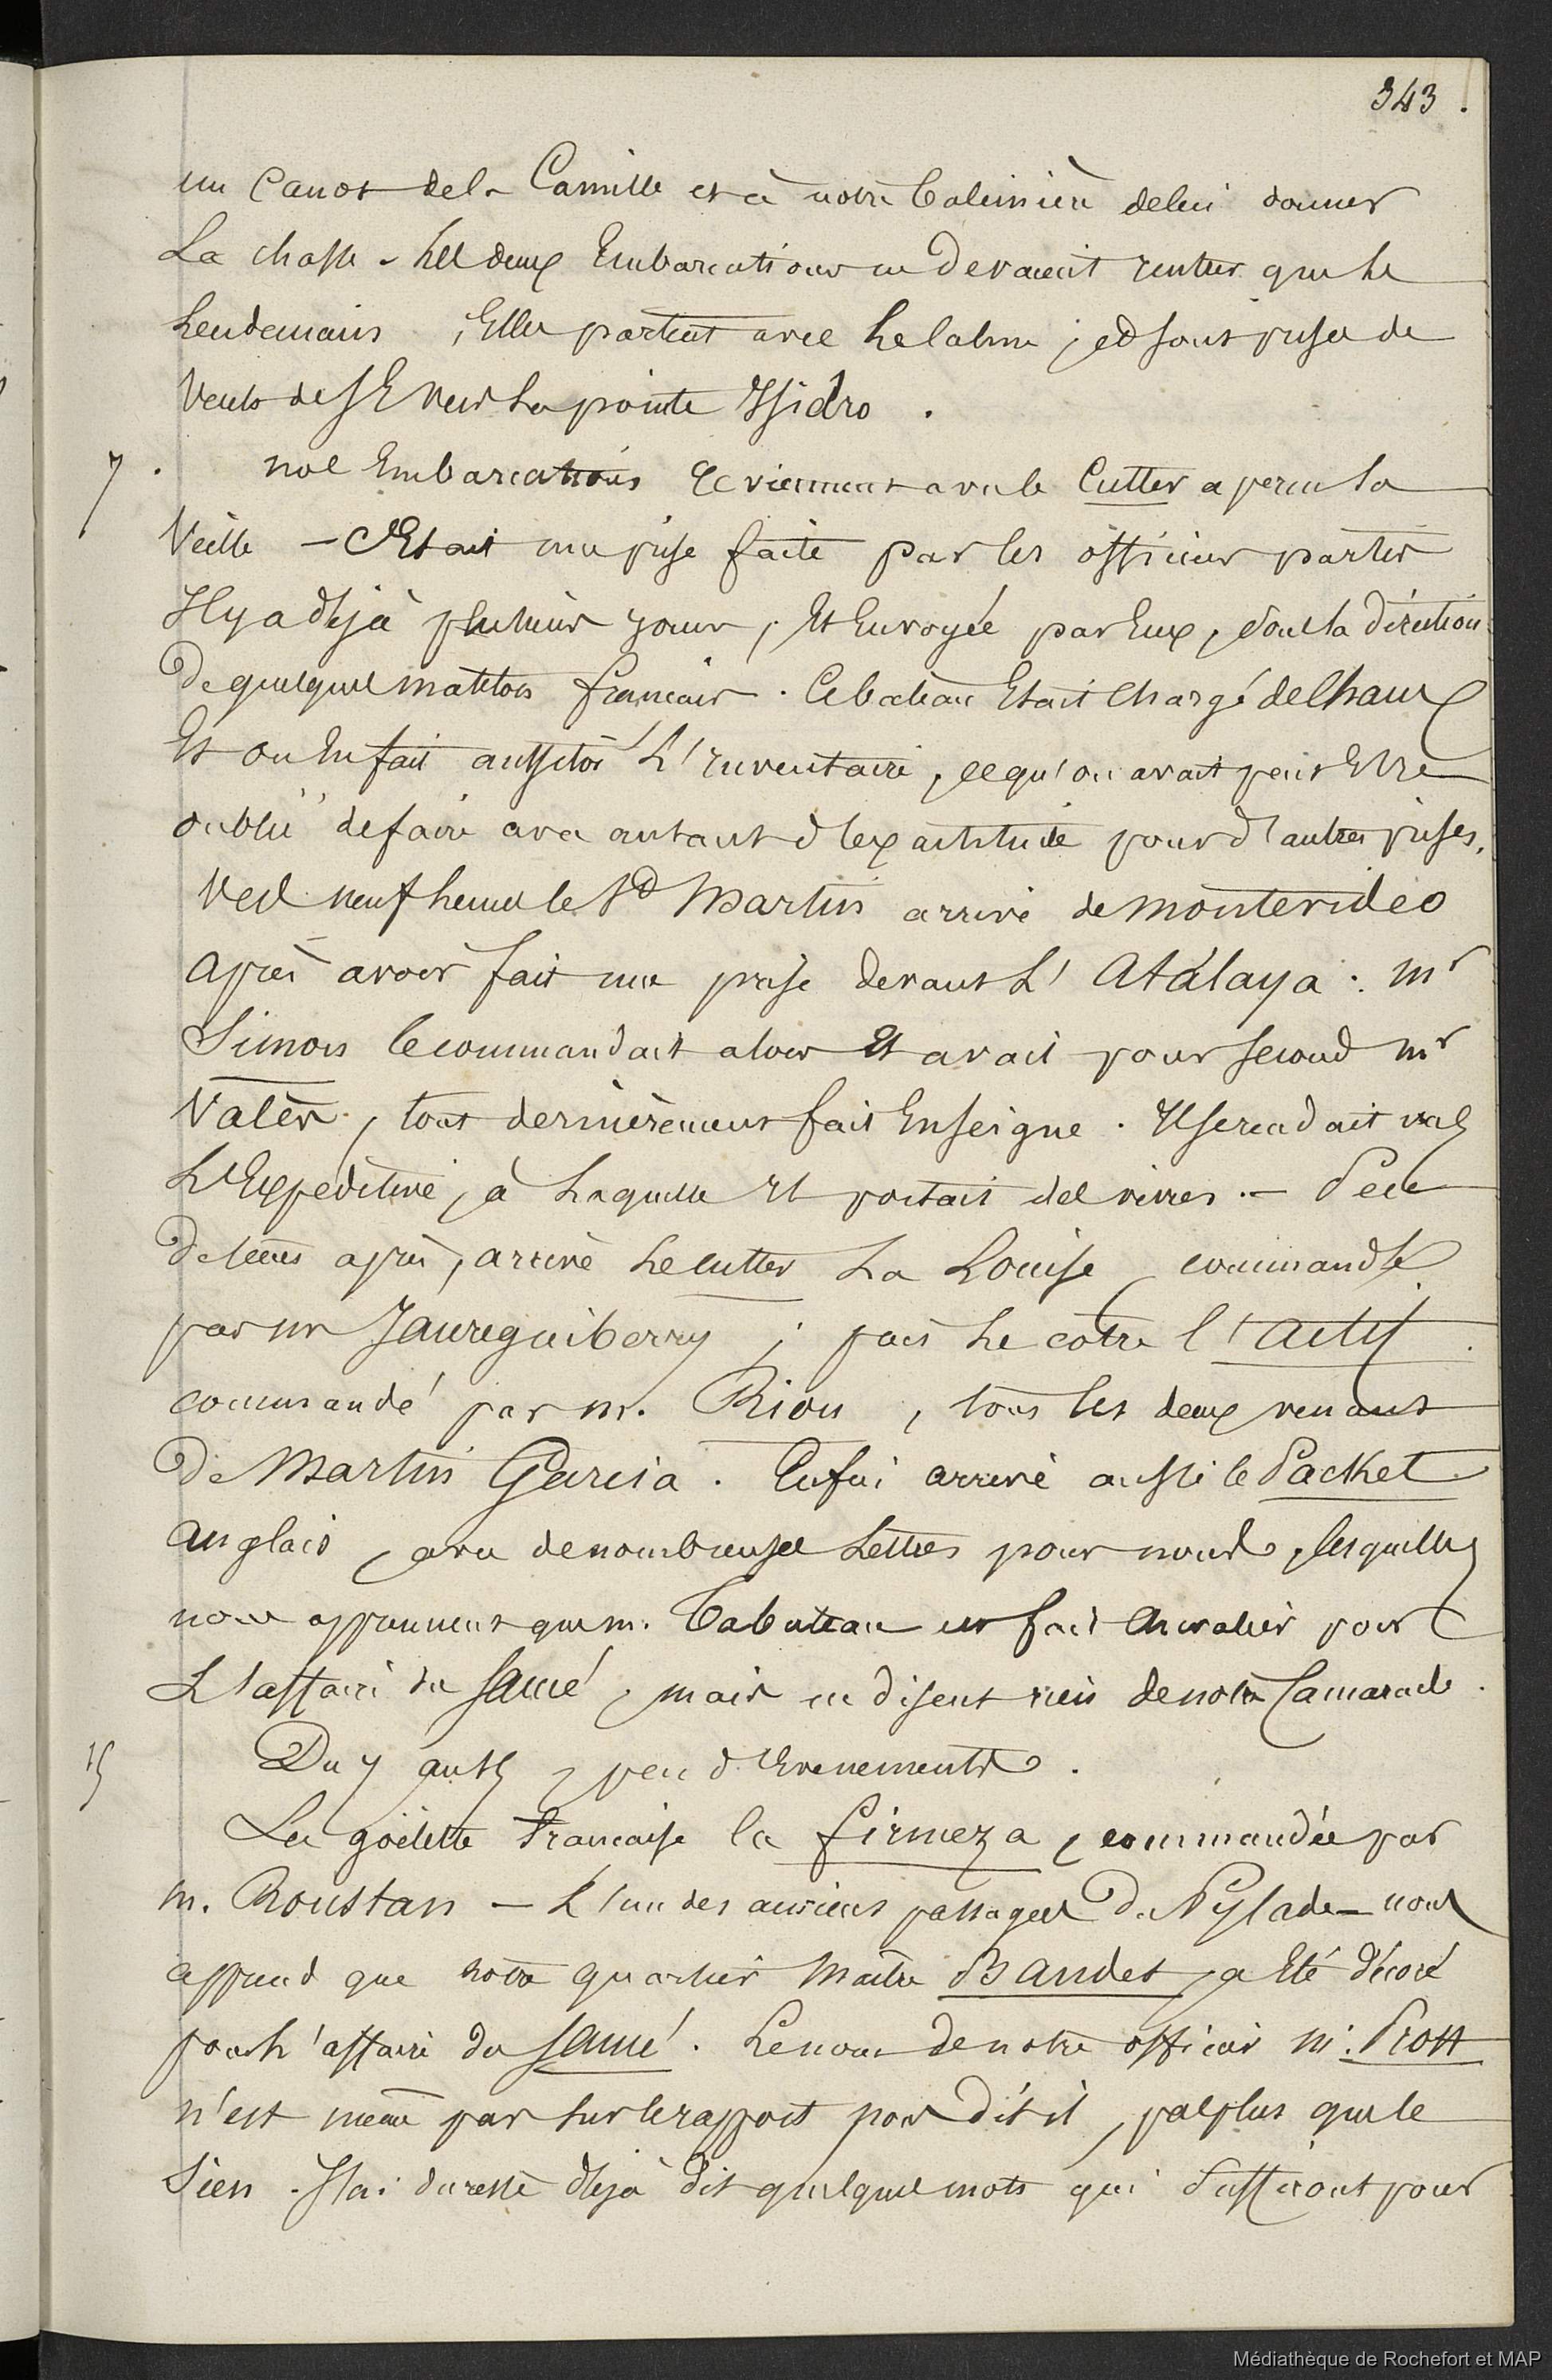 343.
un canot de la Camille et à notre baleinière de lui donner
La chasse - Les deux Embarcations ne devaient rentrer que le
Lendemain ; Elles partent avec le calme ; et sont prises de
vents de SE vers la pointe Isidro .
7 . nos Embarcations Reviennent avec le Cutter aperçu la
Veille - C'Etait une prise faite par les officiers partis
Il y a déjà plusieurs jours, Et Envoyée par Eux, sous la direction
De quelques matelots français . Ce bateau Etait chargé de Chaux
Et on En fait aussitôt L'Inventaire, ce qu'on avait peut Etre
oublié de faire avec autant d'exactitude pour d'autres prises.
Vers neuf heures le Sd Martin arrive de montevideo
après avoir fait une prise devant L'Atalaya . Mr
Simon le commandait alors Et avait pour second mr
Valès, tout dernièrement fait Enseigne . Il se rendait vers
L'Expéditive, à Laquelle Il portait des vivres . - Peu
De tems après, arrive Le cutter La Louise, commandé
par mr Jaureguiberry ; puis Le cotre l'Actif
commandé par m. Riou , tous les deux venant
De Martin Garcia . Enfin arrive aussi le Packet
anglais, avec de nombreuses Lettres pour nous, lesquelles
nous apprennent que m. Tabuteau est fait chevalier pour
L'affaire du Saucé, mais ne disent rien de notre Camarade .
15 Du 7 au 15, peu d'Evenements .
La goëlette française la firmeza, commandée par
m. Roustan - L'un des anciens passagers du Pylade - nous
apprend que notre quartier Maître Baudet, a Eté décoré
pour L'affaire du Saucé . Le nom de notre officier m. Prott
n'est même pas sur le rapport pour dit il, pas plus que le
Sien . J'ai du reste déjà dit quelques mots qui Suffiront pour
Médiathèque de Rochefort et MAP